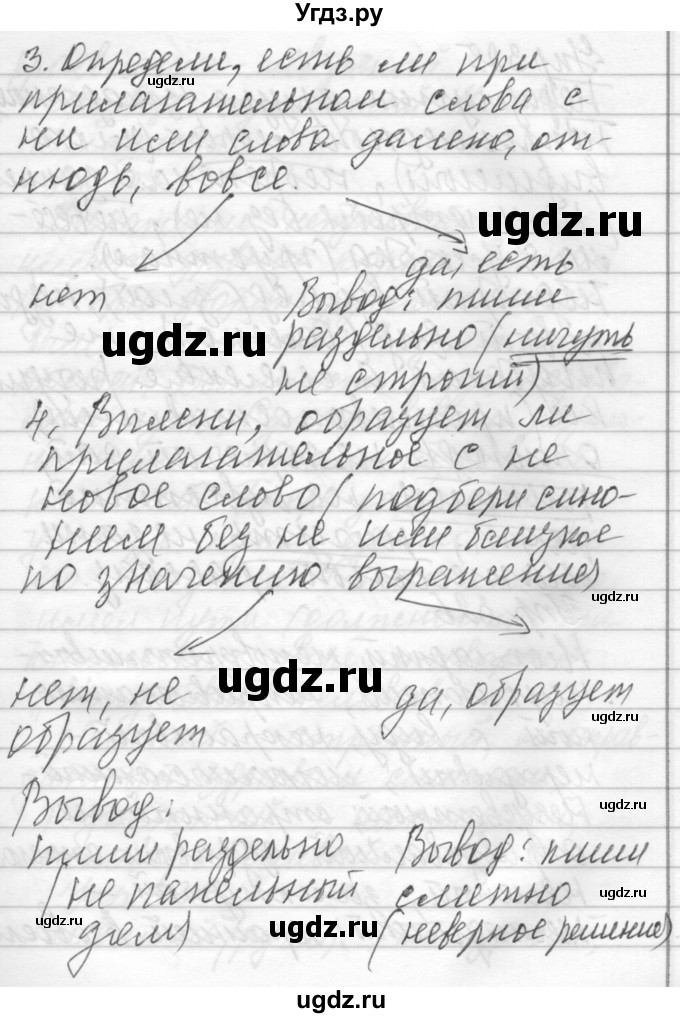 Угдз.ру
3. Определи, есть ли при
прилагательном слова с
ни или слова далеко, от-
нюдь, вовсе.
да, есть
нет
Вывод: пиши
раздельно (ничуть
не строгий)
4. Выясни, образует ли
прилагательное с не
новое слово (подбери сино-
ним без не или близкое
по значению выражение)
нет, не
образует
да, образует
Вывод:
пиши раздельно
(не панельный
дом)
Вывод: пиши
слитно
(неверное решение)
ugdz.ru
ugdz.ru
ugdz.ru
ugdz.ru
ugdz.ru
ugdz.ru
ugdz.ru
ugdz.ru
ugdz.ru
ugdz.ru
ugdz.ru
ugdz.ru
ugdz.ru